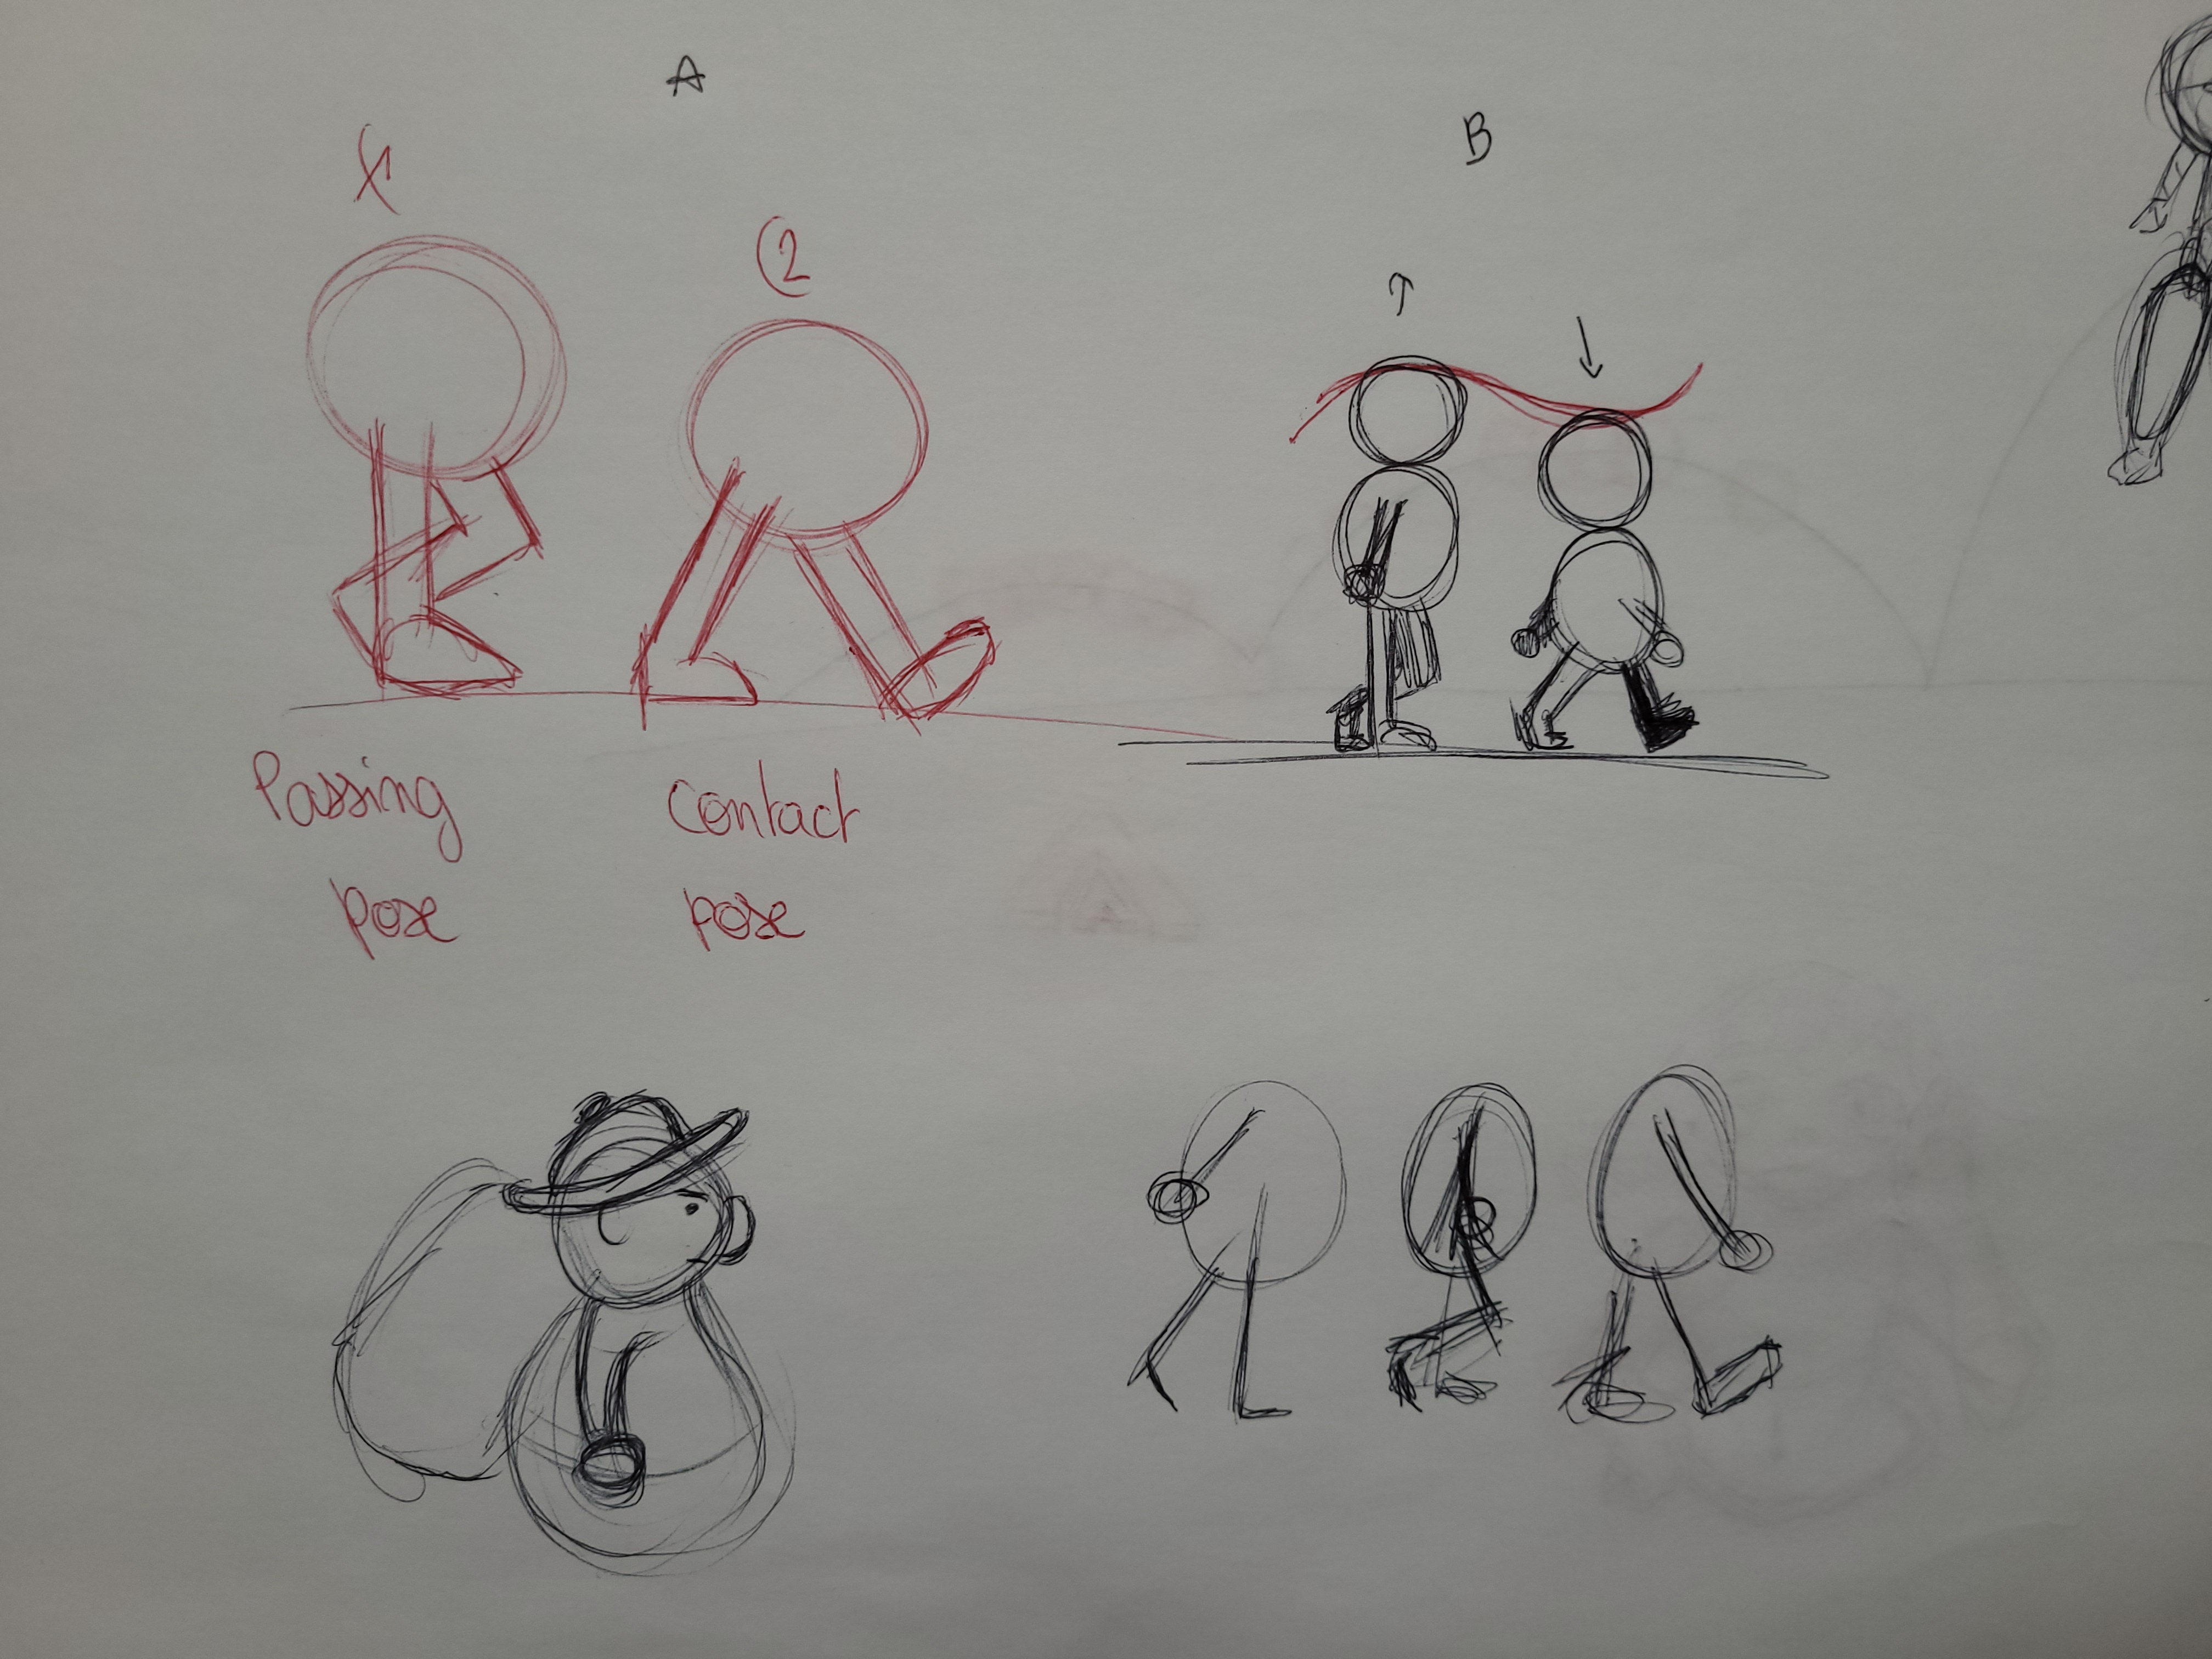 A
B
1
2
Passing
pose
Contact
pose